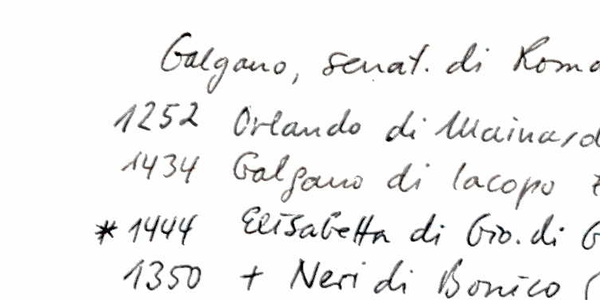 Galgano, senat. di Roma
1252 Orlando di Mainard
1434 Galgano di Iacopo
* 1444 Elisabetta di Gio. di G
1350 + Neri di Bonico (